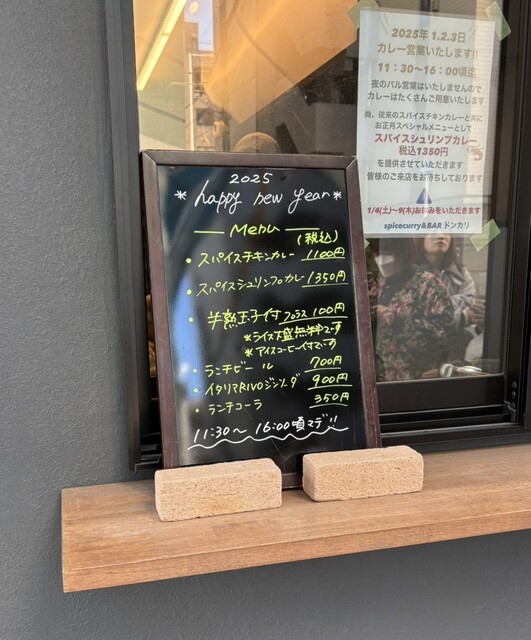 2025年 1.2.3日
カレー営業いたします!!
11：30〜16：00頃迄
夜のバル営業はいたしませんので
カレーはたくさんご用意いたします
尚、従来のスパイスチキンカレーと共に
お正月スペシャルメニューとして
スパイスシュリンプカレー
税込1350円
を提供させていただきます
皆様のご来店をお待ちしております
1/4(土)〜9(木)お休みをいただきます
spicecurry&BAR ドンカリ
2025
*happy new year*
Menu
(税込)
・スパイスチキンカレー 1100円
・スパイスシュリンプカレー 1350円
・半熟玉子付 プラス 100円
*ライス大盛無料です
*アイスコーヒー付です
・ランチビール 700円
・イタリアRIVOジンソーダ 900円
・ランチコーラ 350円
11:30〜16:00頃マデ!!